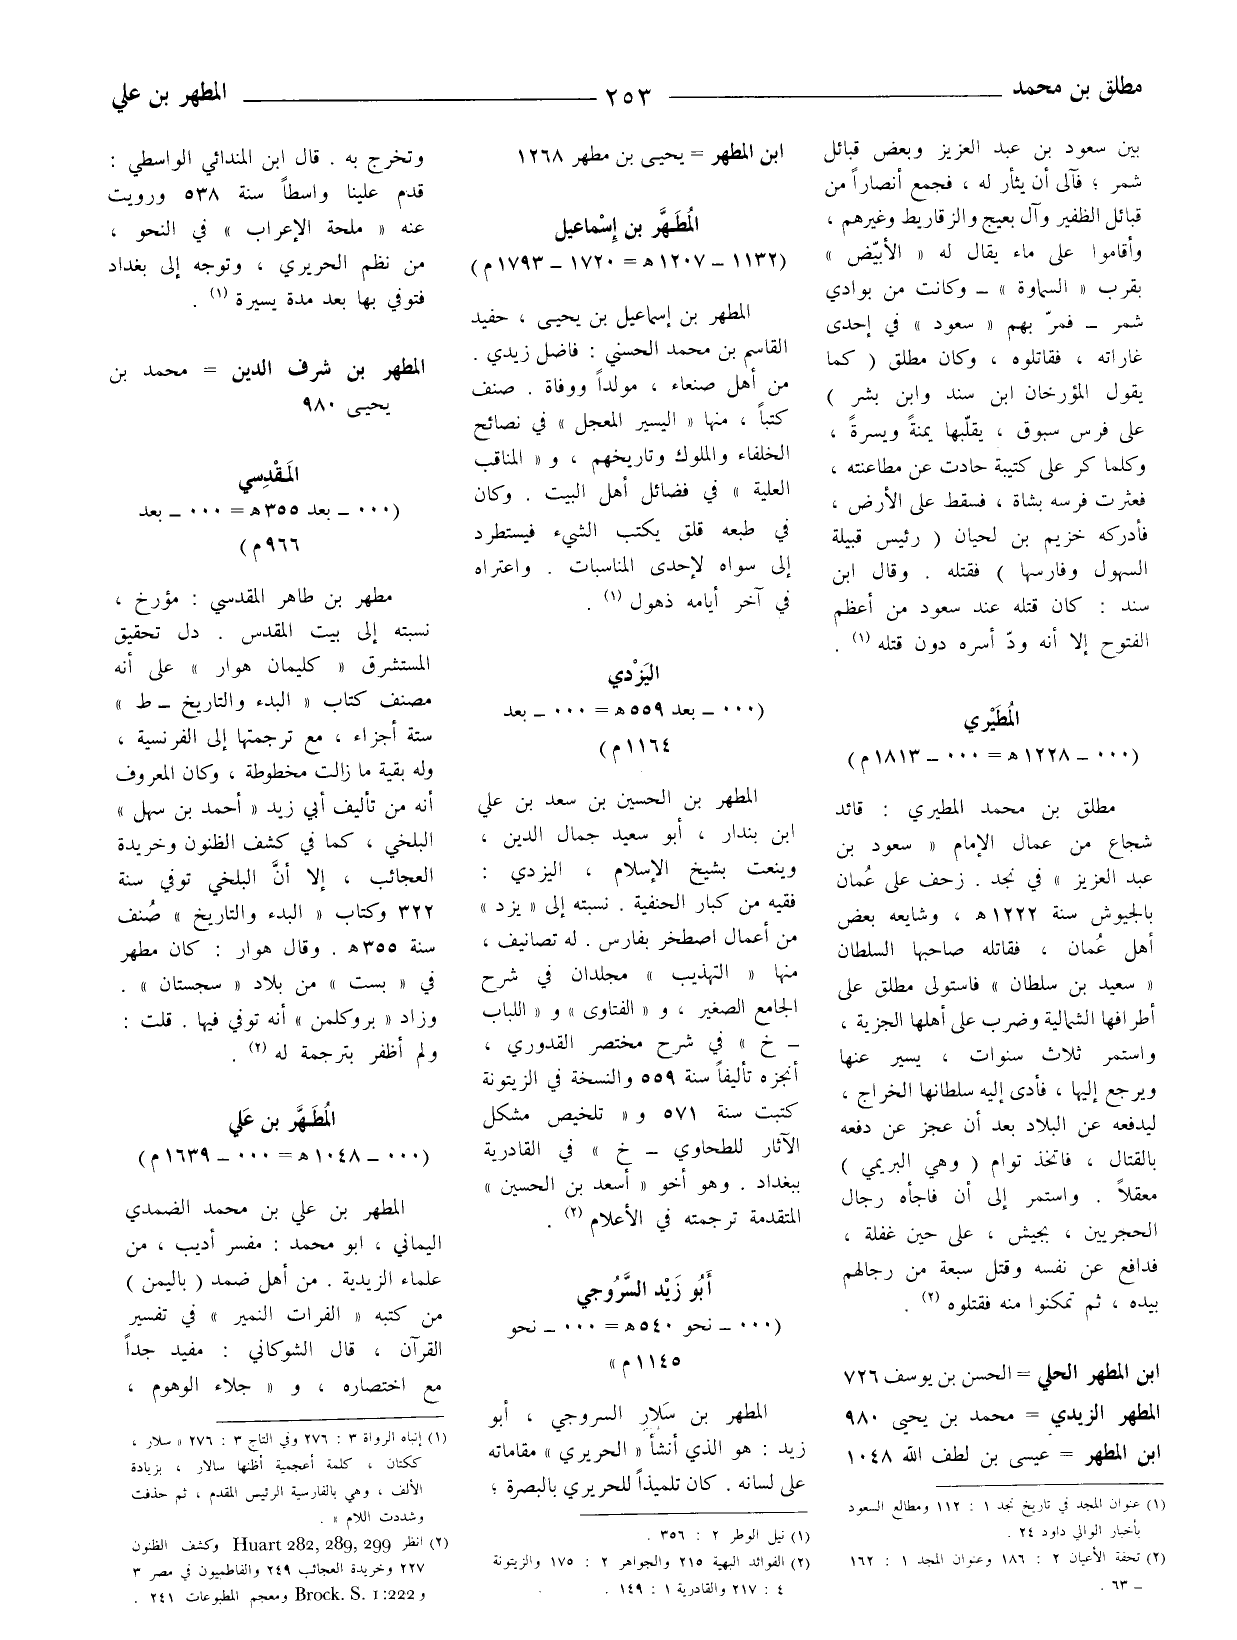 مطلق بن محمد ــــــ ٢٥٣ ــــــ المطهر بن علي
بين سعود بن عبد العزيز وبعض قبائل
شمر ؛ فآلى أن يثأر له ، فجمع أنصاراً من
قبائل الظفير وآل بعيج والزقاريط وغيرهم ،
وأقاموا على ماء يقال له « الأبيّض »
بقرب « السماوة » ــ وكانت من بوادي
شمر ــ فمرّ بهم « سعود » في إحدى
غاراته ، فقاتلوه ، وكان مطلق ( كما
يقول المؤرخان ابن سند وابن بشر )
على فرس سبوق ، يقلّبها يمنةً ويسرةً ،
وكلما كر على كتيبة حادت عن مطاعنته ،
فعثرت فرسه بشاة ، فسقط على الأرض ،
فأدركه خزيم بن لحيان ( رئيس قبيلة
السهول وفارسها ) فقتله . وقال ابن
سند : كان قتله عند سعود من أعظم
الفتوح إلا أنه ودّ أسره دون قتله (١) .
المُطَيْري
(٠٠٠ ــ ١٢٢٨ هـ = ٠٠٠ ــ ١٨١٣ م)
مطلق بن محمد المطيري : قائد
شجاع من عمال الإمام « سعود بن
عبد العزيز » في نجد . زحف على عُمان
بالجيوش سنة ١٢٢٢ هـ ، وشايعه بعض
أهل عُمان ، فقاتله صاحبها السلطان
« سعيد بن سلطان » فاستولى مطلق على
أطرافها الشمالية وضرب على أهلها الجزية ،
واستمر ثلاث سنوات ، يسير عنها
ويرجع إليها ، فأدى إليه سلطانها الخراج ،
ليدفعه عن البلاد بعد أن عجز عن دفعه
بالقتال ، فاتخذ توام ( وهي البريمي )
معقلاً . واستمر إلى أن فاجأه رجال
الحجريين ، بجيش ، على حين غفلة ،
فدافع عن نفسه وقتل سبعة من رجالهم
بيده ، ثم تمكنوا منه فقتلوه (٢) .
ابن المطهر الحلي = الحسن بن يوسف ٧٢٦
المطهر الزيدي = محمد بن يحيى ٩٨٠
ابن المطهر = عيسى بن لطف الله ١٠٤٨
(١) عنوان المجد في تاريخ نجد ١ : ١١٢ ومطالع السعود
بأخبار الوالي داود ٢٤ .
(٢) تحفة الأعيان ٢ : ١٨٦ وعنوان المجد ١ : ١٦٢
ــ ٦٣ .
ابن المطهر = يحيى بن مطهر ١٢٦٨
المُطَهَّر بن إسْماعيل
(١١٣٢ ــ ١٢٠٧ هـ = ١٧٢٠ ــ ١٧٩٣ م)
المطهر بن إسماعيل بن يحيى ، حفيد
القاسم بن محمد الحسني : فاضل زيدي .
من أهل صنعاء ، مولداً ووفاة . صنف
كتباً ، منها « اليسير المعجل » في نصائح
الخلفاء والملوك وتاريخهم ، و « المناقب
العلية » في فضائل أهل البيت . وكان
في طبعه قلق يكتب الشيء فيستطرد
إلى سواه لإحدى المناسبات . واعتراه
في آخر أيامه ذهول (١) .
اليَزْدي
(٠٠٠ ــ بعد ٥٥٩ هـ = ٠٠٠ ــ بعد
١١٦٤ م)
المطهر بن الحسين بن سعد بن علي
ابن بندار ، أبو سعيد جمال الدين ،
وينعت بشيخ الإسلام ، اليزدي :
فقيه من كبار الحنفية . نسبته إلى « يزد »
من أعمال اصطخر بفارس . له تصانيف ،
منها « التهذيب » مجلدان في شرح
الجامع الصغير ، و « الفتاوى » و « اللباب
ــ خ » في شرح مختصر القدوري ،
أنجزه تأليفاً سنة ٥٥٩ والنسخة في الزيتونة
كتبت سنة ٥٧١ و « تلخيص مشكل
الآثار للطحاوي ــ خ » في القادرية
ببغداد . وهو أخو « أسعد بن الحسين »
المتقدمة ترجمته في الأعلام (٢) .
أَبُو زَيْد السَّرُوجي
(٠٠٠ ــ نحو ٥٤٠ هـ = ٠٠٠ ــ نحو
١١٤٥ م »
المطهر بن سَلارِ السروجي ، أبو
زيد : هو الذي أنشأ « الحريري » مقاماته
على لسانه . كان تلميذاً للحريري بالبصرة ؛
(١) نيل الوطر ٢ : ٣٥٦ .
(٢) الفوائد البهية ٢١٥ والجواهر ٢ : ١٧٥ والزيتونة
٤ : ٢١٧ والقادرية ١ : ١٤٩ .
وتخرج به . قال ابن المندائي الواسطي :
قدم علينا واسطاً سنة ٥٣٨ ورويت
عنه « ملحة الإعراب » في النحو ،
من نظم الحريري ، وتوجه إلى بغداد
فتوفي بها بعد مدة يسيرة (١) .
المطهر بن شرف الدين = محمد بن
يحيى ٩٨٠
المَقْدِسي
(٠٠٠ ــ بعد ٣٥٥ هـ = ٠٠٠ ــ بعد
٩٦٦ م)
مطهر بن طاهر المقدسي : مؤرخ ،
نسبته إلى بيت المقدس . دل تحقيق
المستشرق « كليمان هوار » على أنه
مصنف كتاب « البدء والتاريخ ــ ط »
ستة أجزاء ، مع ترجمتها إلى الفرنسية ،
وله بقية ما زالت مخطوطة ، وكان المعروف
أنه من تأليف أبي زيد « أحمد بن سهل »
البلخي ، كما في كشف الظنون وخريدة
العجائب ، إلا أنَّ البلخي توفي سنة
٣٢٢ وكتاب « البدء والتاريخ » صُنف
سنة ٣٥٥ هـ . وقال هوار : كان مطهر
في « بست » من بلاد « سجستان » .
وزاد « بروكلمن » أنه توفي فيها . قلت :
ولم أظفر بترجمة له (٢) .
المُطَهَّر بن عَلي
(٠٠٠ ــ ١٠٤٨ هـ = ٠٠٠ ــ ١٦٣٩ م)
المطهر بن علي بن محمد الضمدي
اليماني ، ابو محمد : مفسر أديب ، من
علماء الزيدية . من أهل ضمد ( باليمن )
من كتبه « الفرات النمير » في تفسير
القرآن ، قال الشوكاني : مفيد جداً
مع اختصاره ، و « جلاء الوهوم ،
(١) إنباه الرواة ٣ : ٢٧٦ وفي التاج ٣ : ٢٧٦ « سلار ،
ككتان ، كلمة أعجمية أظنها سالار ، بزيادة
الألف ، وهي بالفارسية الرئيس المقدم ، ثم حذفت
وشددت اللام » .
(٢) انظر Huart 282, 289, 299 وكشف الظنون
٢٢٧ وخريدة العجائب ٢٤٩ والفاطميون في مصر ٣
و Brock. S. 1:222 ومعجم المطبوعات ٢٤١ .